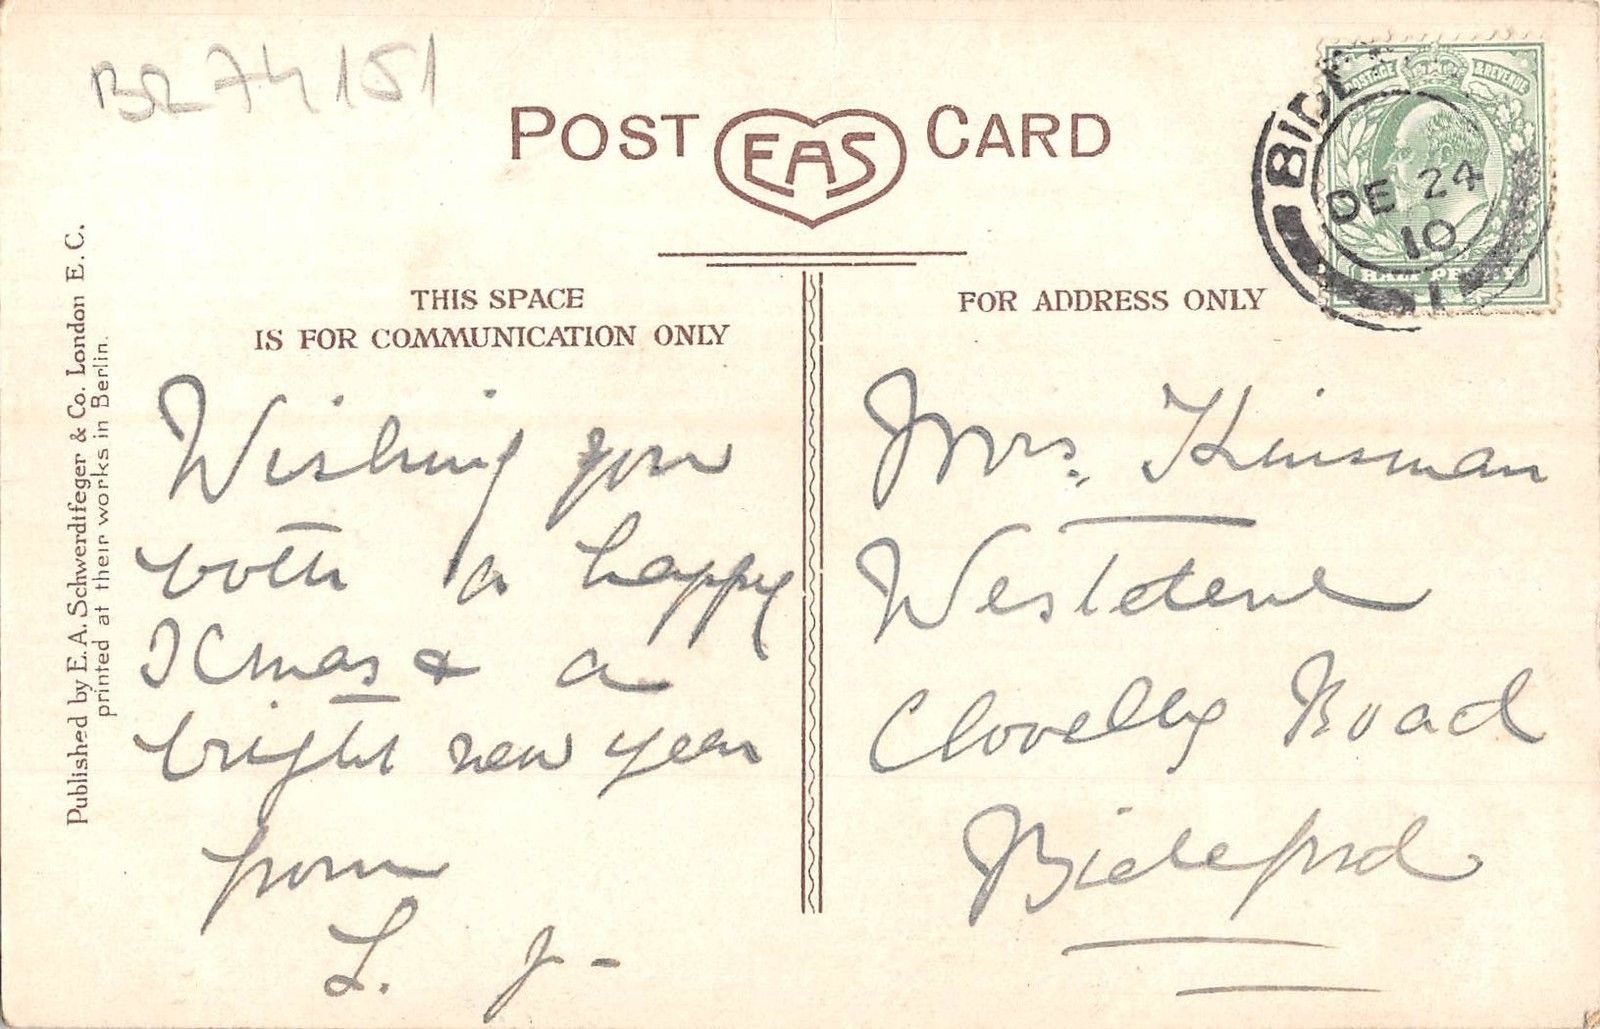 BR 74151
POST EAS CARD
POSTAGE & REVENUE
BIDE
DE 24
10
HALF PENNY
THIS SPACE
IS FOR COMMUNICATION ONLY
FOR ADDRESS ONLY
Published by E. A. Schwerdtfeger & Co. London E. C.
printed at their works in Berlin.
Wishing you
both a happy
Xmas & a
bright new year
from
L. J-
Mrs. Kinsman
Clovelly Road
Bideford